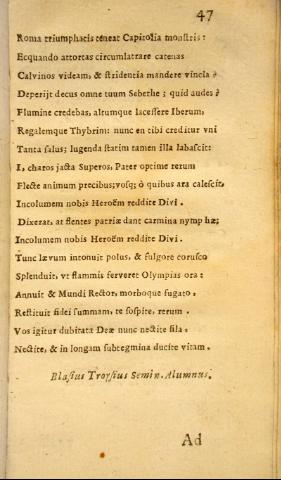 47
Roma triumphatis teneat Capitolia monstris:
Ecquando attortas circumlatrare catenas
Calvinos videam, & stridentia mandere vincla?
Deperijt decus omne tuum Sebethe; quid audes?
Flumine credebas, altumque lacessere Iberum,
Regalemque Thybrim: nunc en tibi creditur vni
Tanta salus; lugenda statim tamen illa labascit:
I, charos jacta Superos, Pater optime rerum
Flecte animum precibus; vosq; ò quibus ara calescit,
Incolumem nobis Heroëm reddite Divi.
Dixerat, at flentes patriæ dant carmina nymphæ;
Incolumem nobis Heroëm reddite Divi.
Tunc lævum intonuit polus, & fulgore corusco
Splenduit, vt flammis ferveret Olympias ora:
Annuit & Mundi Rector, morboque fugato,
Restituit fidei summam, te sospite, rerum.
Vos igitur dubitata Deæ nunc nectite fila,
Nectite, & in longam subtegmina ducite vitam.
Blasius Troysius Semin. Alumnus.
Ad